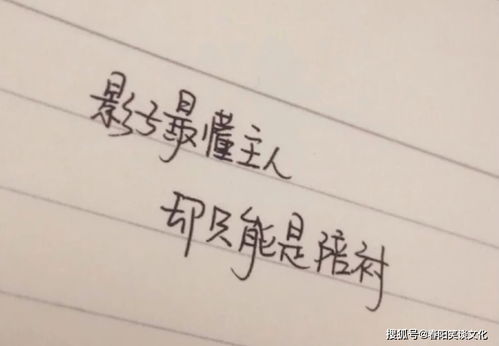 影子最懂主人
却只能是陪衬
搜狐号@春阳笑谈文化